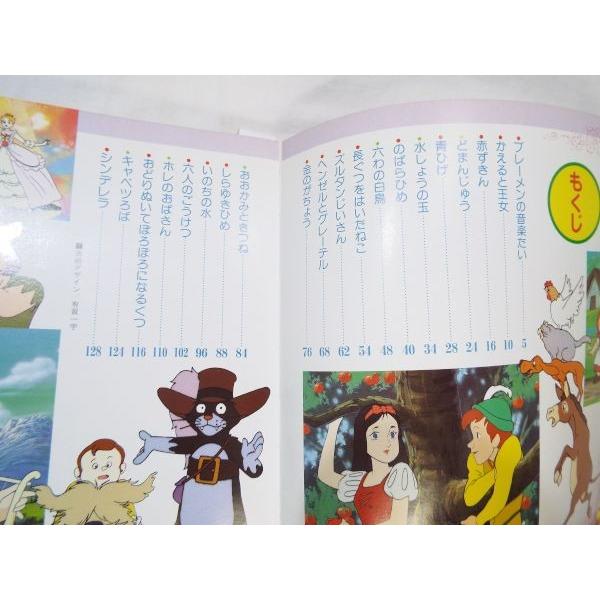 もくじ
ブレーメンの音楽たい 5
かえると王女 10
赤ずきん 16
どまんじゅう 24
青ひげ 28
水しょうの玉 34
のばらひめ 40
六わの白鳥 48
長ぐつをはいたねこ 54
ズルタンじいさん 62
ヘンゼルとグレーテル 68
金のがちょう 76
おおかみときつね 84
しらゆきひめ 88
いのちの水 96
六人のごうけつ 102
ホレのおばさん 110
おどりぬいてぼろぼろになるくつ 116
キャベツろば 124
シンデレラ 128